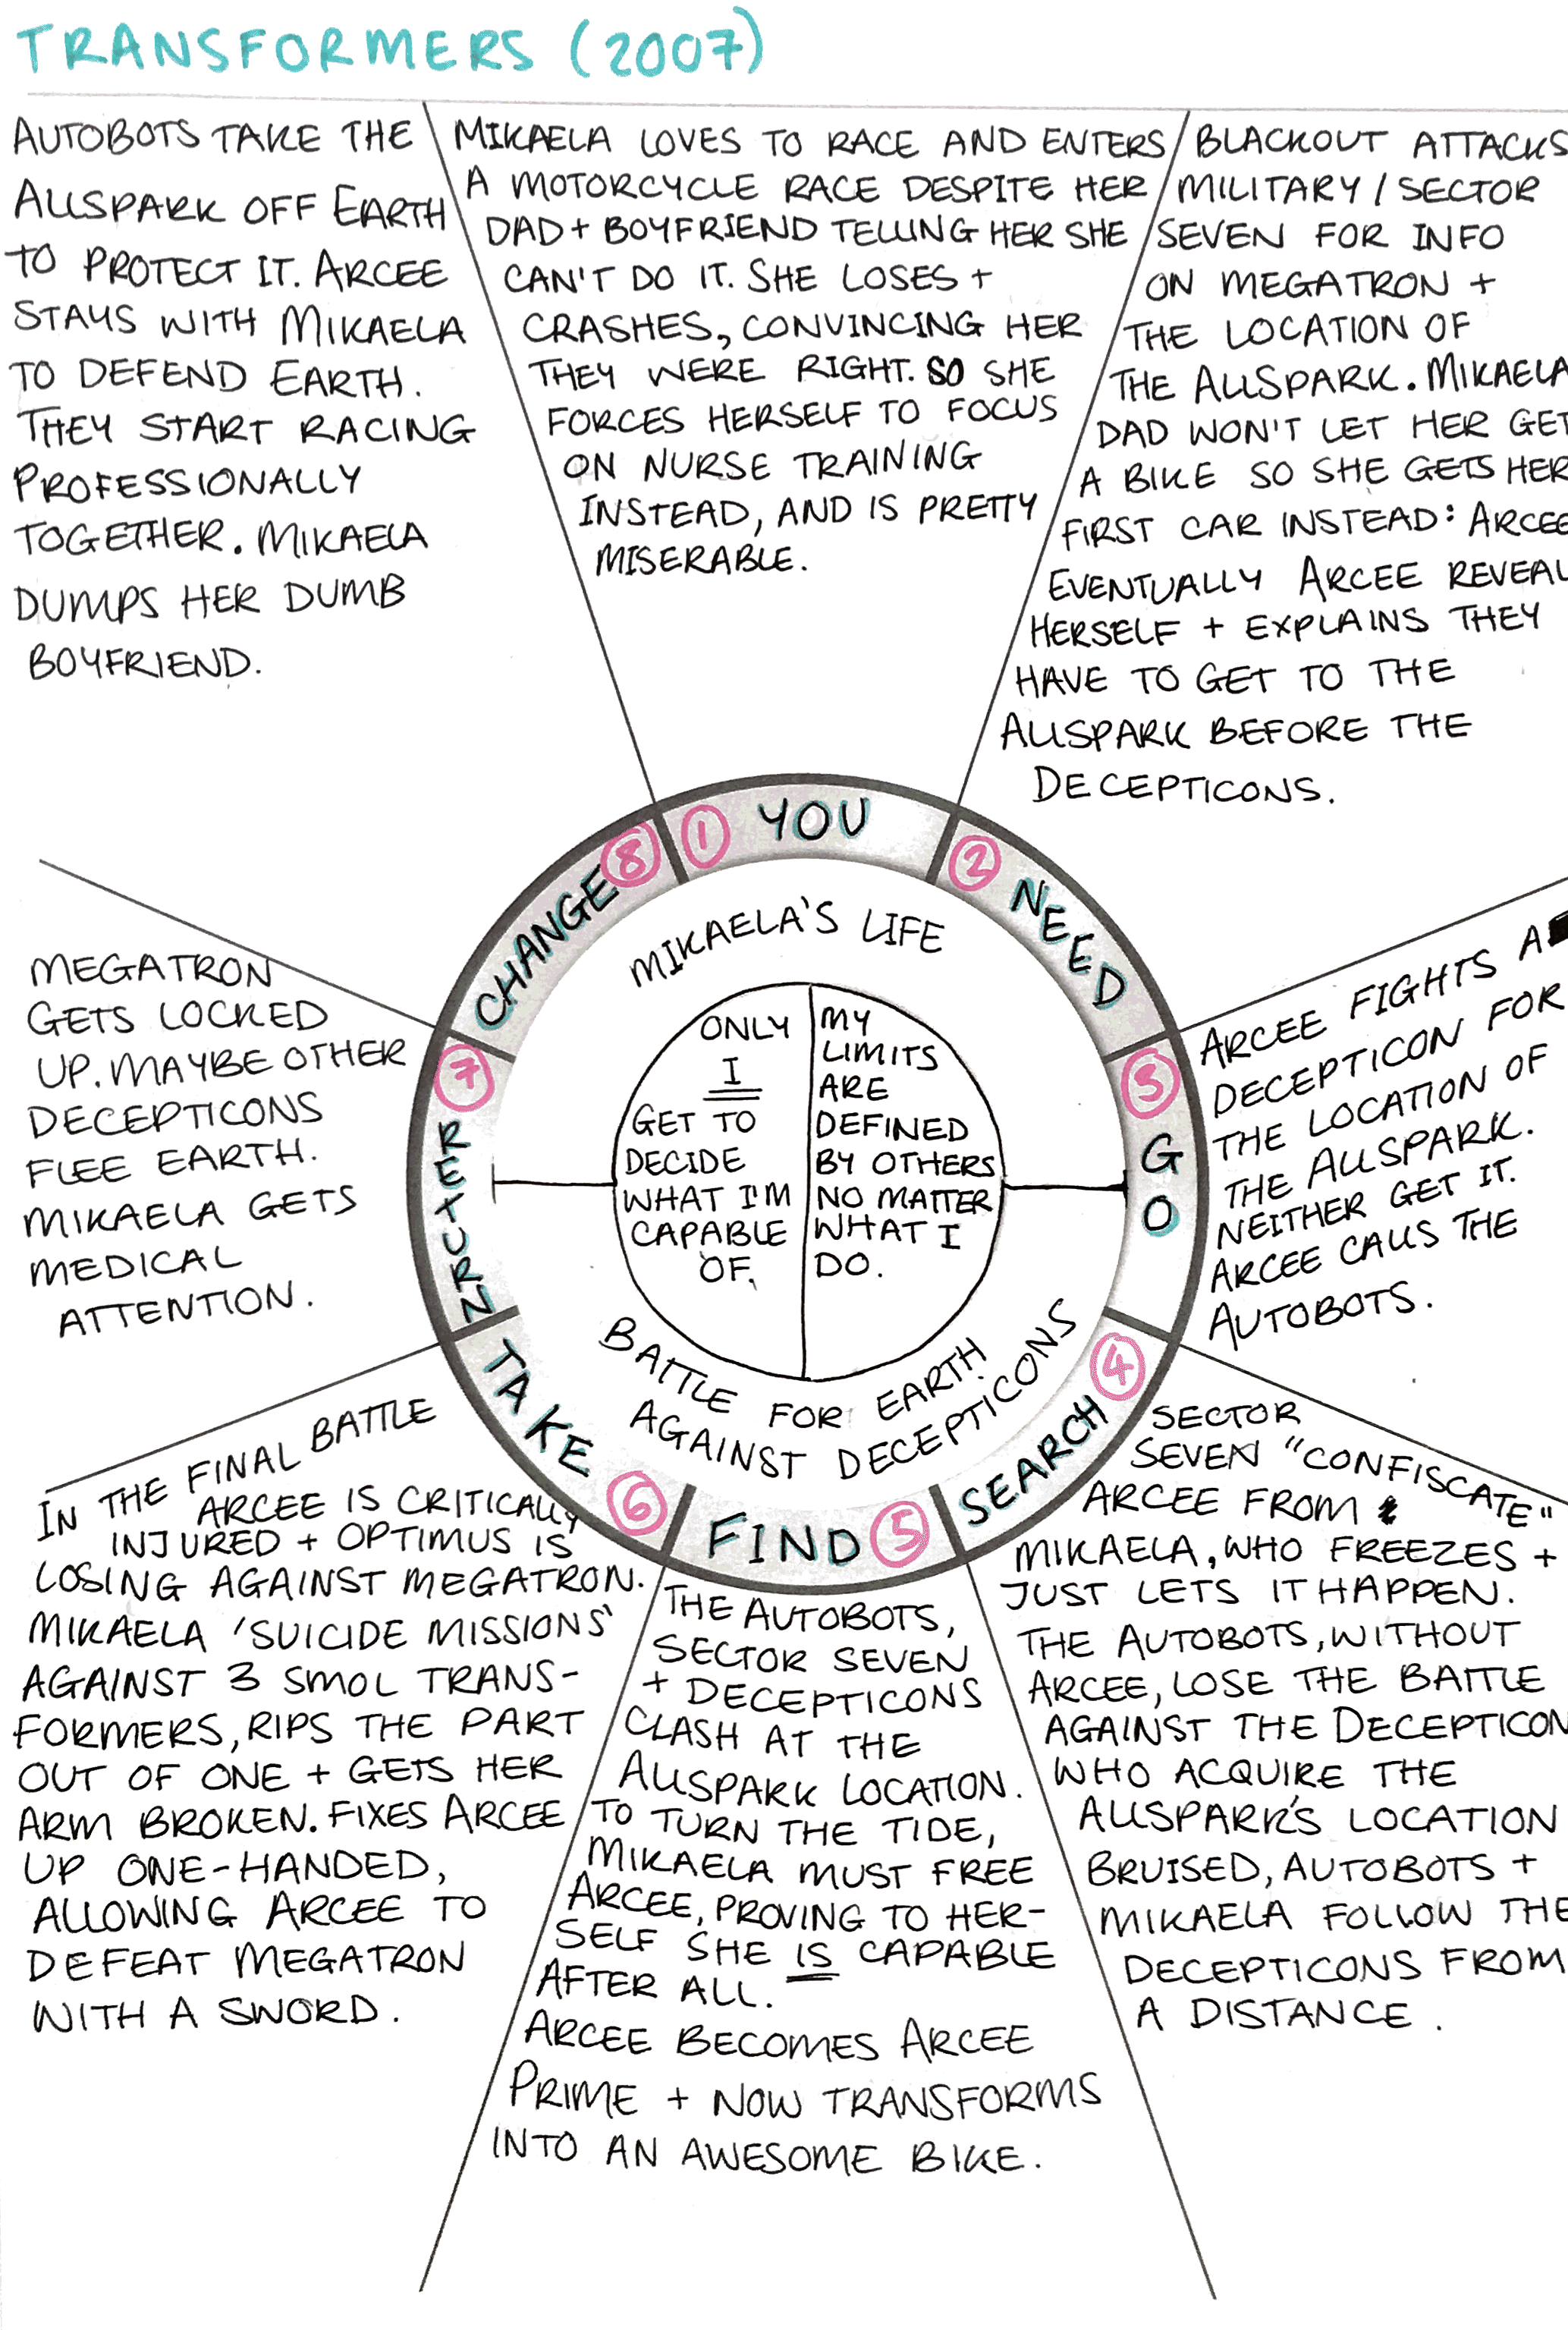 TRANSFORMERS (2007)
AUTOBOTS TAKE THE
ALLSPARK OFF EARTH
TO PROTECT IT. ARCEE
STAYS WITH MIKAELA
TO DEFEND EARTH.
THEY START RACING
PROFESSIONALLY
TOGETHER. MIKAELA
DUMPS HER DUMB
BOYFRIEND.
MIKAELA LOVES TO RACE AND ENTERS
A MOTORCYCLE RACE DESPITE HER
DAD + BOYFRIEND TELLING HER SHE
CAN'T DO IT. SHE LOSES +
CRASHES, CONVINCING HER
THEY WERE RIGHT. SO SHE
FORCES HERSELF TO FOCUS
ON NURSE TRAINING
INSTEAD, AND IS PRETTY
MISERABLE.
BLACKOUT ATTACKS
MILITARY / SECTOR
SEVEN FOR INFO
ON MEGATRON +
THE LOCATION OF
THE ALLSPARK. MIKAELA
DAD WON'T LET HER GET
A BIKE SO SHE GETS HER
FIRST CAR INSTEAD: ARCEE
EVENTUALLY ARCEE REVEAL
HERSELF + EXPLAINS THEY
HAVE TO GET TO THE
ALLSPARK BEFORE THE
DECEPTICONS.
1 YOU
2 NEED
3 GO
4 SEARCH
5 FIND
6 TAKE
7 RETURN
8 CHANGE
MIKAELA'S LIFE
ONLY
I
GET TO
DECIDE
WHAT I'M
CAPABLE
OF.
MY
LIMITS
ARE
DEFINED
BY OTHERS
NO MATTER
WHAT I
DO.
BATTLE FOR EARTH
AGAINST DECEPTICONS
ARCEE FIGHTS A
DECEPTICON FOR
THE LOCATION OF
THE ALLSPARK.
NEITHER GET IT.
ARCEE CALLS THE
AUTOBOTS.
SECTOR
SEVEN "CONFISCATE"
ARCEE FROM
MIKAELA, WHO FREEZES +
JUST LETS IT HAPPEN.
THE AUTOBOTS, WITHOUT
ARCEE, LOSE THE BATTLE
AGAINST THE DECEPTICON
WHO ACQUIRE THE
ALLSPARK'S LOCATION
BRUISED, AUTOBOTS +
MIKAELA FOLLOW THE
DECEPTICONS FROM
A DISTANCE.
THE AUTOBOTS,
SECTOR SEVEN
+ DECEPTICONS
CLASH AT THE
ALLSPARK LOCATION.
TO TURN THE TIDE,
MIKAELA MUST FREE
ARCEE, PROVING TO HER-
SELF SHE IS CAPABLE
AFTER ALL.
ARCEE BECOMES ARCEE
PRIME + NOW TRANSFORMS
INTO AN AWESOME BIKE.
IN THE FINAL BATTLE
ARCEE IS CRITICALLY
INJURED + OPTIMUS IS
LOSING AGAINST MEGATRON.
MIKAELA 'SUICIDE MISSIONS'
AGAINST 3 SMOL TRANS-
FORMERS, RIPS THE PART
OUT OF ONE + GETS HER
ARM BROKEN. FIXES ARCEE
UP ONE-HANDED,
ALLOWING ARCEE TO
DEFEAT MEGATRON
WITH A SWORD.
MEGATRON
GETS LOCKED
UP. MAYBE OTHER
DECEPTICONS
FLEE EARTH.
MIKAELA GETS
MEDICAL
ATTENTION.